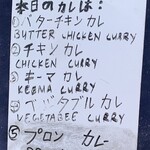 本日のカレーは:
①バターチキンカレ
BUTTER CHICKEN CURRY
②チキンカレ
CHICKEN CURRY
③キーマカレ
KEEMA CURRY
ベジタブルカレ
VEGETABLE CURRY
⑤プロンカレー